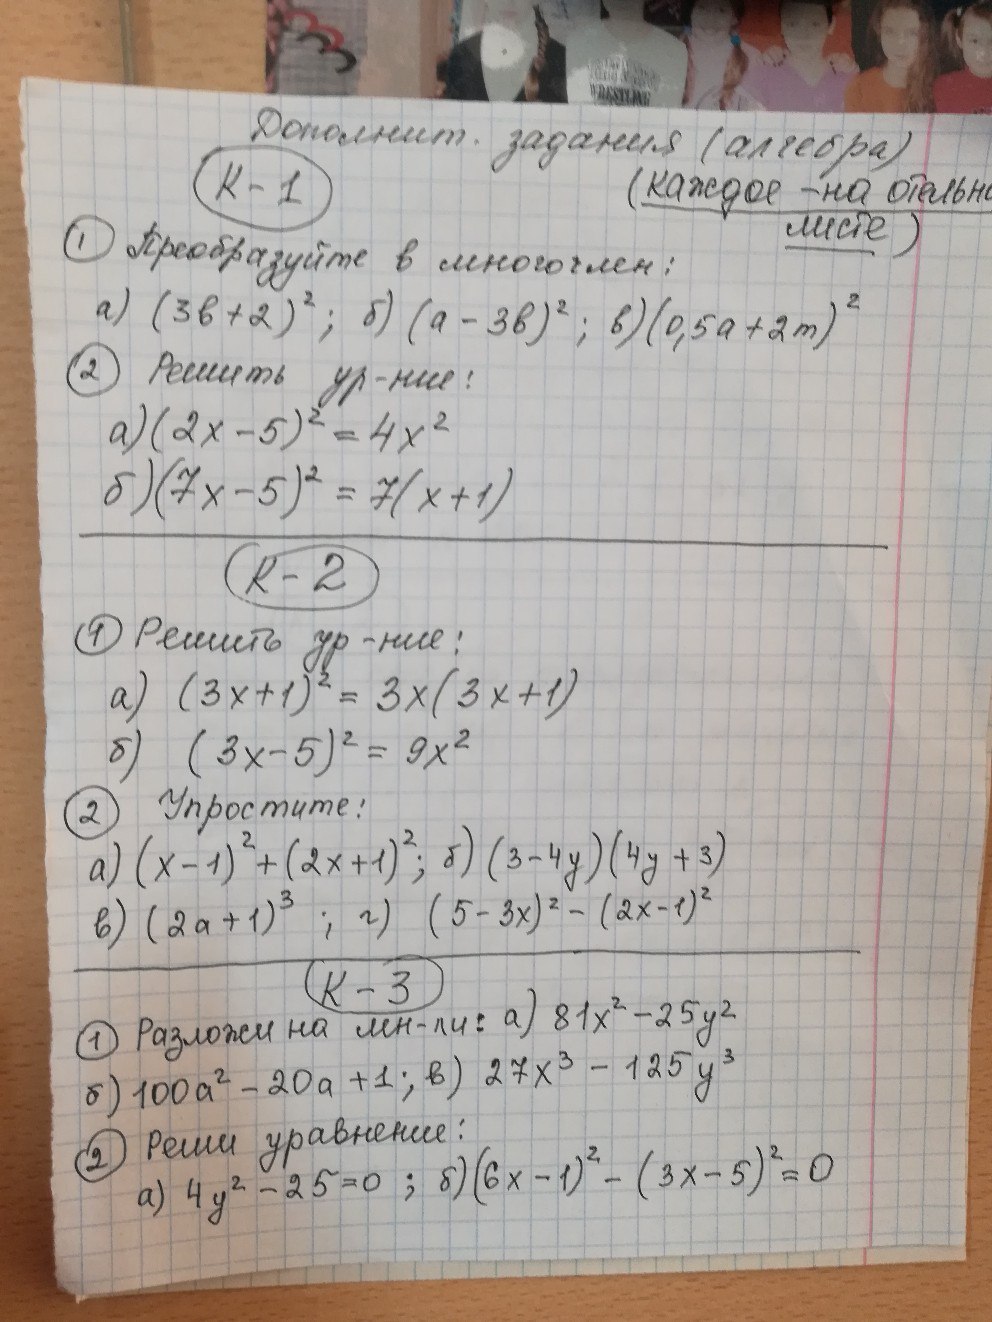 Дополнит. задания (алгебра)
(каждое - на отельно
листе)
К-1
① Преобразуйте в многочлен:
а) (3в+2)²; б) (а-3в)²; в) (0,5а+2m)²
② Решить ур-ние:
а) (2x-5)² = 4x²
б) (7x-5)² = 7(x+1)
К-2
① Решить ур-ние:
а) (3x+1)² = 3x(3x+1)
б) (3x-5)² = 9x²
② Упростите:
а) (x-1)²+(2x+1)²; б) (3-4y)(4y+3)
в) (2а+1)³; г) (5-3x)² - (2x-1)²
К-3
① Разложи на мн-ли: а) 81x²-25y²
б) 100а²-20а+1; в) 27x³-125y³
② Реши уравнение:
а) 4y²-25=0; б) (6x-1)²-(3x-5)²=0
WRESTLING